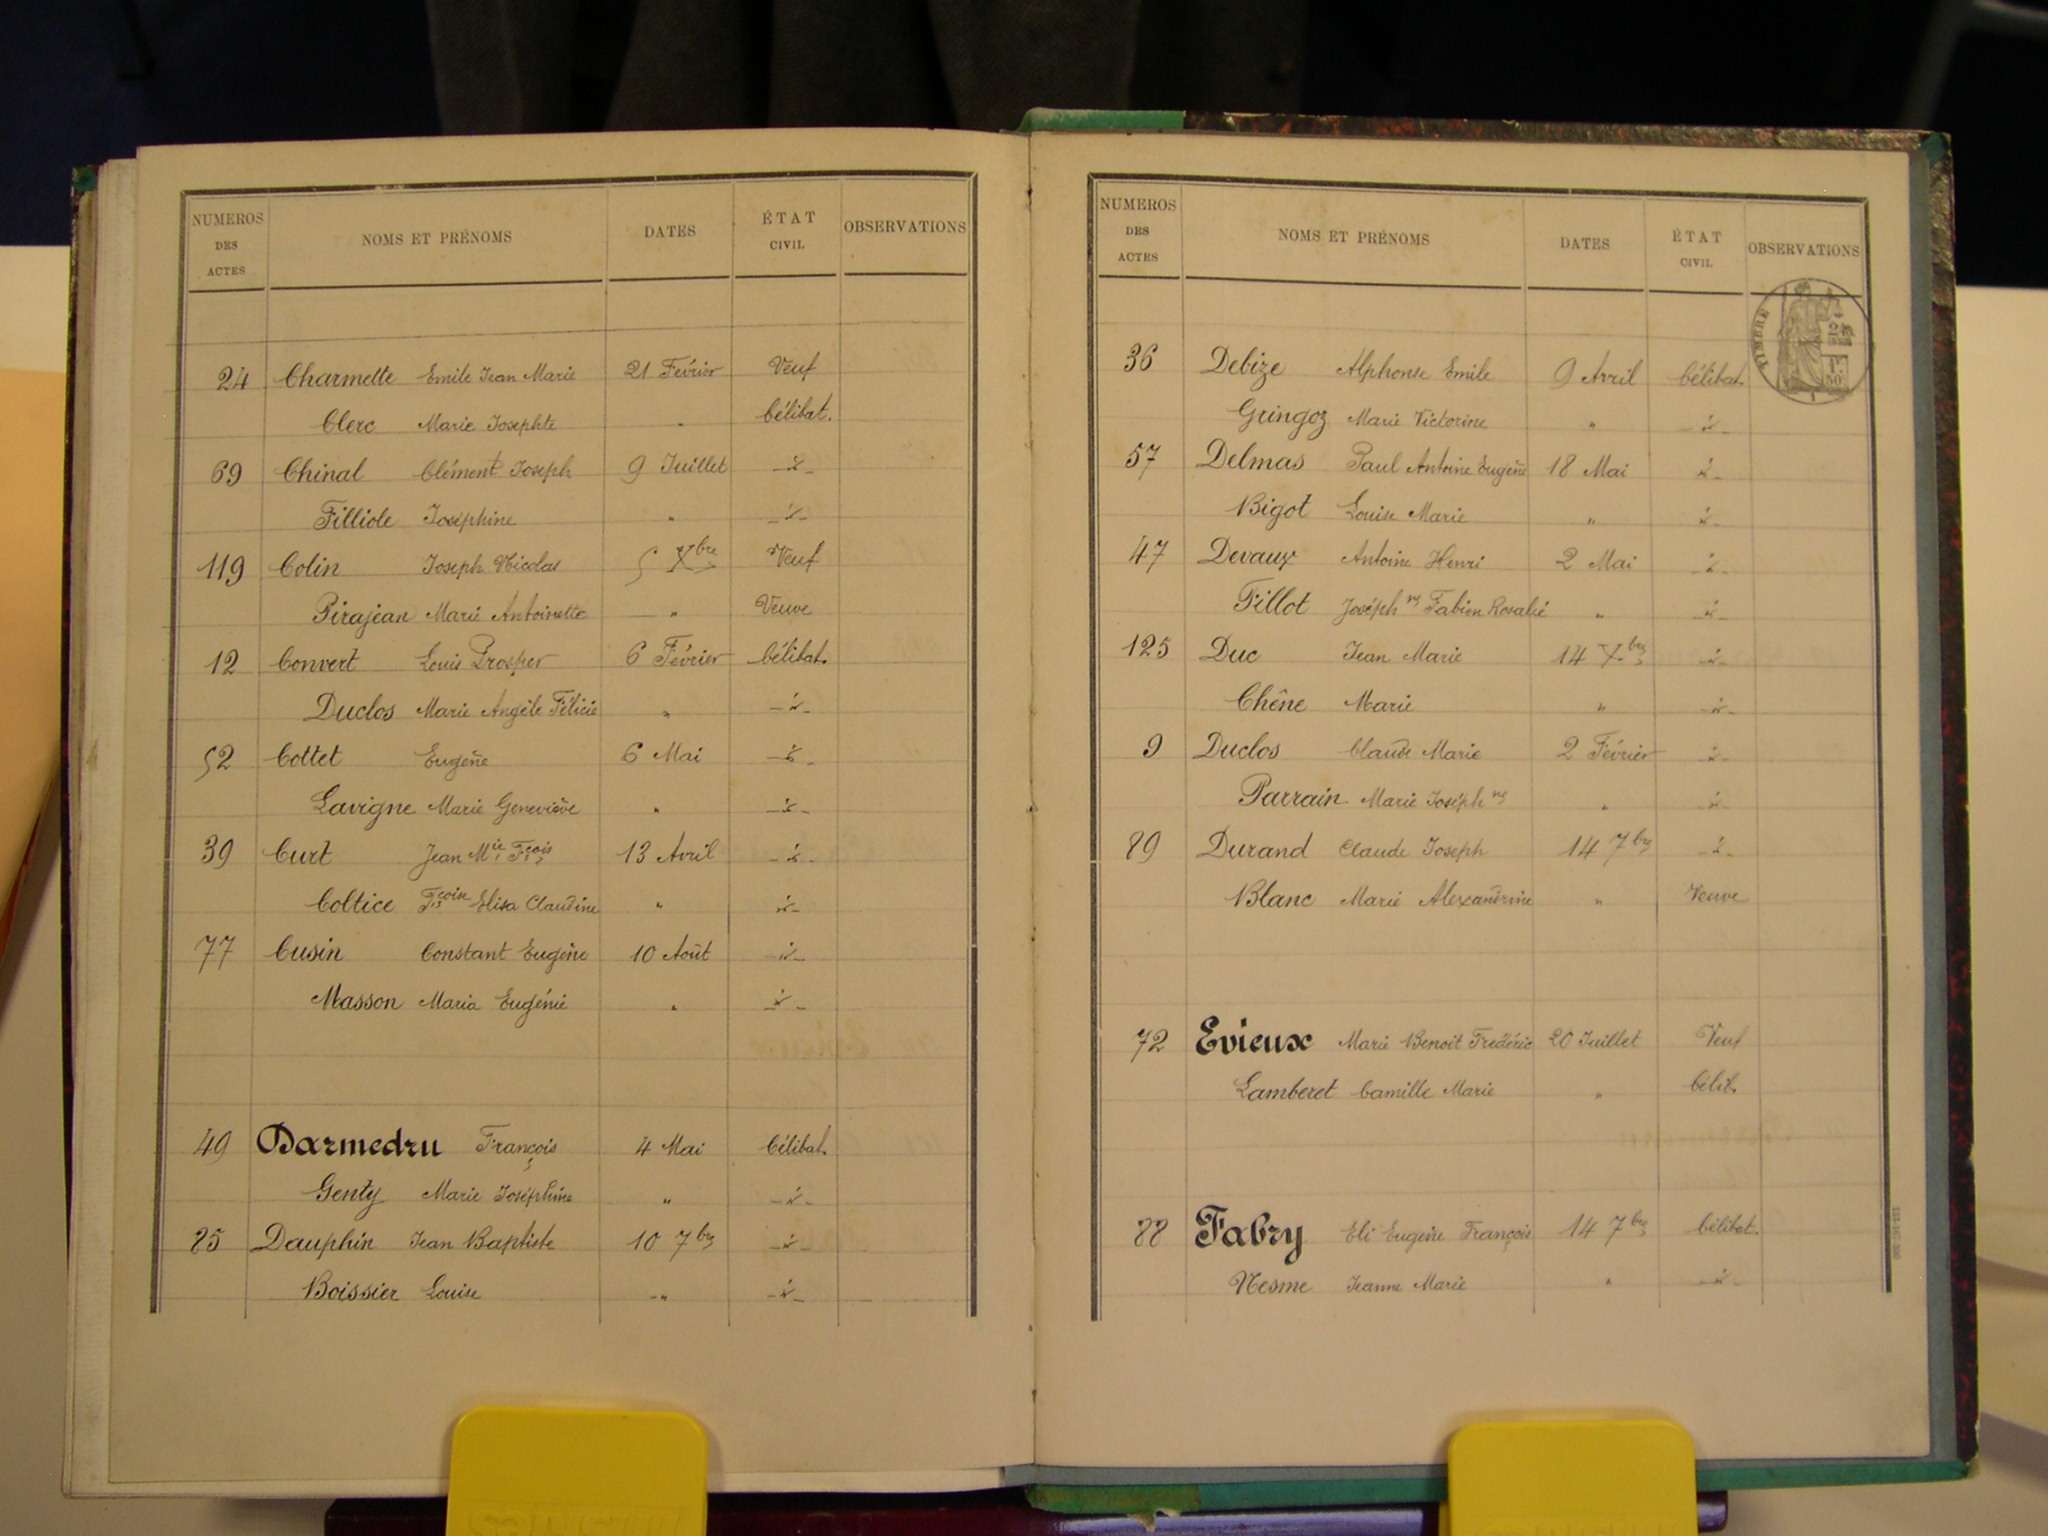 NUMEROS DES ACTES NOMS ET PRÉNOMS DATES ÉTAT CIVIL OBSERVATIONS
24 Charmette Emile Jean Marie 21 Février Veuf
Clerc Marie Josephte " Célibat.
69 Chinal Clément Joseph 9 Juillet -d°-
Filliole Joséphine " -d°-
119 Colin Joseph Nicolas 5 Xbre Veuf
Pirajean Marie Antoinette " Veuve
12 Convert Louis Prosper 6 Février Célibat.
Duclos Marie Angèle Félicie " -d°-
52 Cottet Eugène 6 Mai -d°-
Lavigne Marie Geneviève " -d°-
39 Curt Jean Mie Fçois 13 Avril -d°-
Coltice Fçoise Elisa Claudine " -d°-
77 Cusin Constant Eugène 10 Août -d°-
Masson Maria Eugénie " -d°-
49 Darmedru François 4 Mai Célibat.
Genty Marie Joséphine " -d°-
85 Dauphin Jean Baptiste 10 7bre -d°-
Boissier Louise -"- -d°-
NUMEROS DES ACTES NOMS ET PRÉNOMS DATES ÉTAT CIVIL OBSERVATIONS
TIMBRE
36 Debize Alphonse Emile 9 Avril Célibat.
Gringoz Marie Victorine " -d°-
57 Delmas Paul Antoine Eugène 18 Mai -d°-
Bigot Louise Marie " -d°-
47 Devaux Antoine Henri 2 Mai -d°-
Fillot Joséphne Fabien Rosalie " -d°-
125 Duc Jean Marie 14 Xbre -d°-
Chêne Marie " -d°-
9 Duclos Claude Marie 2 Février -d°-
Parrain Marie Joséphne " -d°-
89 Durand Claude Joseph 14 7bre -d°-
Blanc Marie Alexandrine " Veuve
72 Evieux Marie Benoit Frédéric 20 Juillet Veuf
Lamberet Camille Marie " Célib.
88 Fabry Eli Eugène François 14 7bre Célibat.
Nesme Jeanne Marie " -d°-